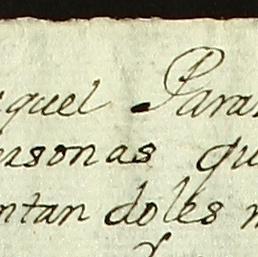 quel Para
ersonas qu
ntan doles